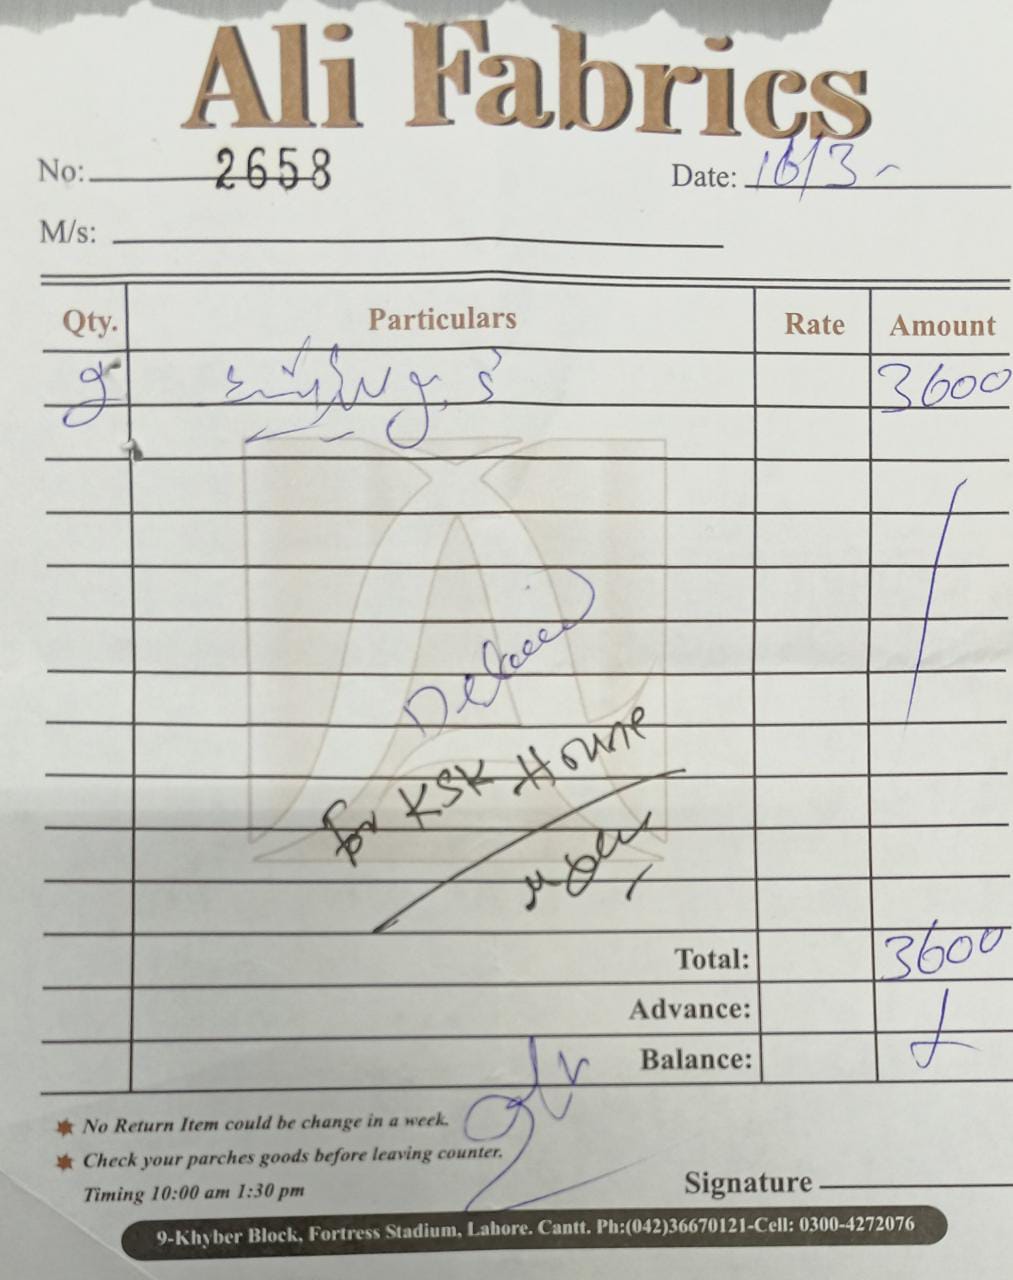 Ali Fabrics
No: 2658
Date: 16/3
M/s:
Qty. Particulars Rate Amount
3600
For KSK House
Total: 3600
Advance:
Balance:
No Return Item could be change in a week.
Check your parches goods before leaving counter.
Timing 10:00 am 1:30 pm
Signature
9-Khyber Block, Fortress Stadium, Lahore. Cantt. Ph:(042)36670121-Cell: 0300-4272076